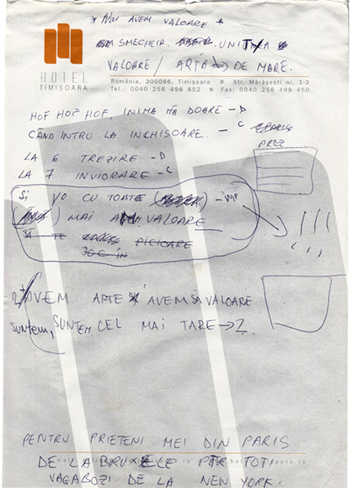 * NOI AVEM VALOARE *
SMECHERIA. UNITA
VALOARE / ARTA → DE MARE.
HOTEL
TIMISOARA
România, 300086, Timisoara ■ Str. Mărăşeşti nr. 1-3
Tel.: 0040 256 498 852 ■ Fax: 0040 256 499 450
HOF HOF HOF, INIMA MĂ DOARE – D
CÂND INTRU LA INCHISOARE. – C
LA 6 TREZIRE – D
LA 7 INVIORARE – C
SI, YO CU TOATE
MAI VALOARE
SĂ TE PICIOARE
AVEM ARTE SI AVEM SI VALOARE
SUNTEM, SUNTEM CEL MAI TARE → 2.
PENTRU PRIETENI MEI DIN PARIS
DE LA BRUXELE PTR TOTI
VAGABOZI DE LA NEW YORK.